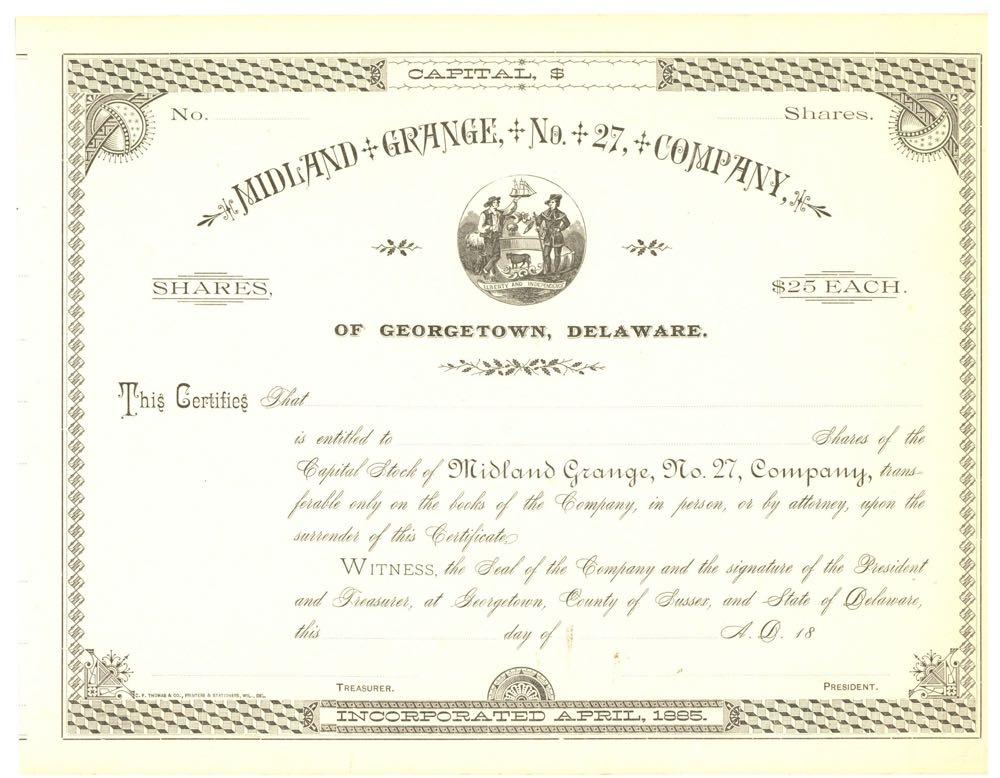 CAPITAL, $
No. Shares.
MIDLAND GRANGE, No. 27, COMPANY,
LIBERTY AND INDEPENDENCE
SHARES, $25 EACH.
OF GEORGETOWN, DELAWARE.
This Certifies That
is entitled to Shares of the
Capital Stock of Midland Grange, No. 27, Company, trans-
ferable only on the books of the Company, in person, or by attorney, upon the
surrender of this Certificate.
WITNESS, the Seal of the Company and the signature of the President
and Treasurer, at Georgetown, County of Sussex, and State of Delaware,
this day of A. D. 18
TREASURER. PRESIDENT.
C. F. THOMAS & CO., PRINTERS & STATIONERS, WIL., DEL.
INCORPORATED APRIL, 1885.